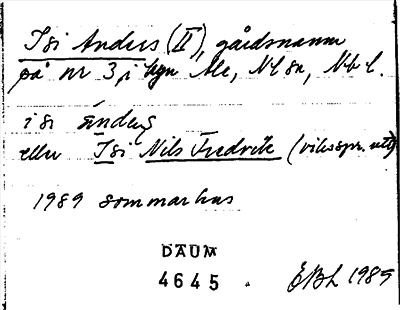 Isi Anders (II), gårdsnamn
på nr 3, i byn Me, Nbsn, Nbl.
isi ánders
eller Isi Nils Fredrik (vilsspr. utt)
1989 sommarhus
DAUM
4645. EBL 1989